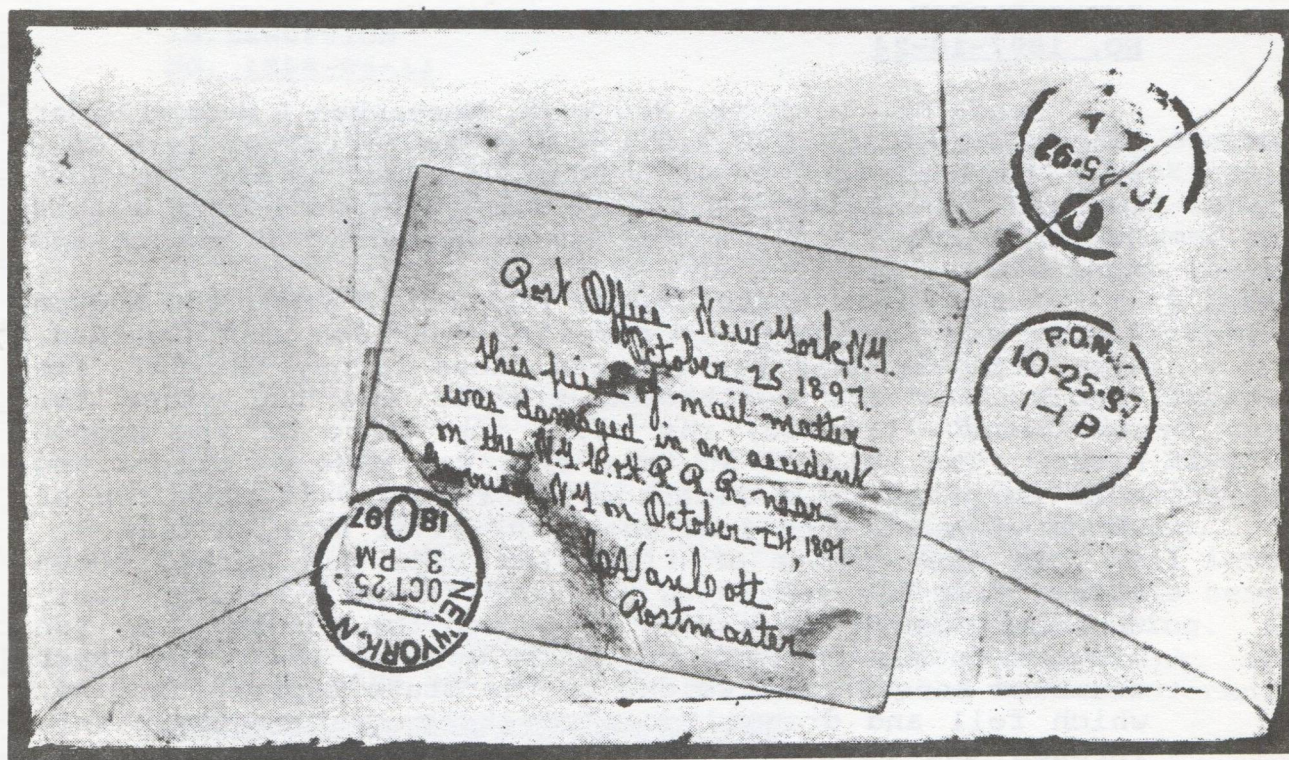 Post Office New York, N.Y.
October 25, 1897.
This piece of mail matter
was damaged in an accident
on the N.Y.C. & H. R. R. R. near
Garrison N.Y on October 24, 1897.
Postmaster
10-25-97
P.O.N.Y.
10-25-97
1-1 P
NEW YORK, N
OCT 25
3-PM
97